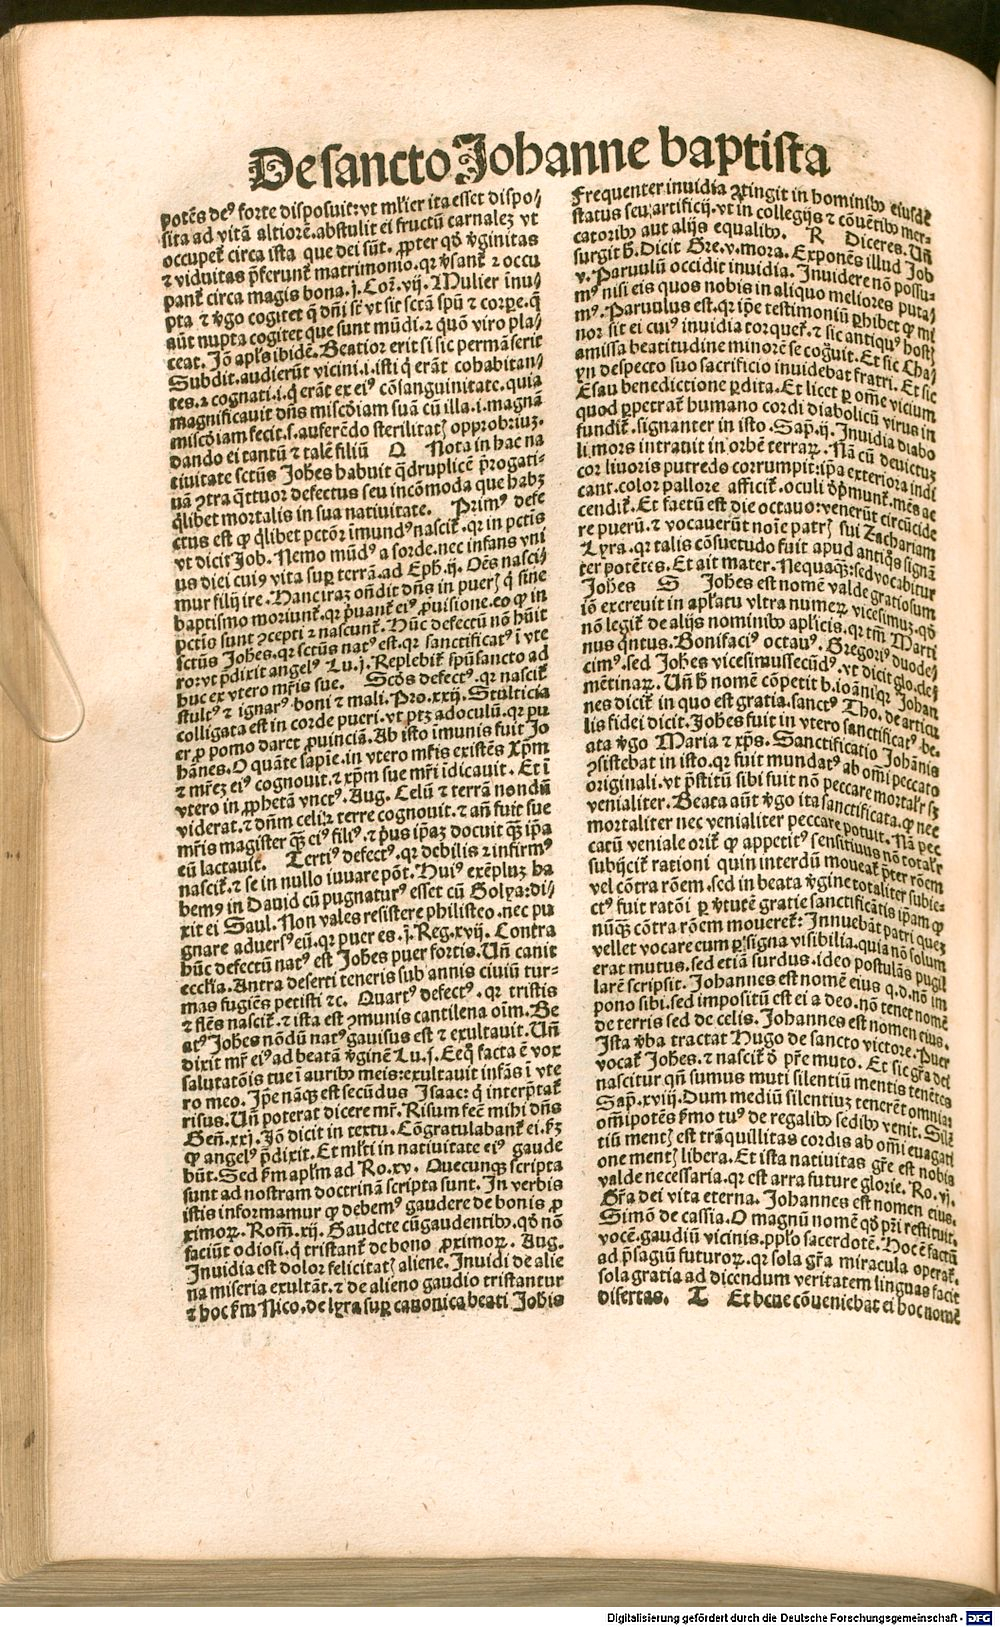 De sancto Johanne baptista
potẽs deꝰ forte disposuit: vt mlʼier ita esset dispo/
sita ad vitã altiorẽ. abstulit ei fructũ carnalez vt
occupet̃ circa ista que dei sũt. ꝓpter qđ ṽginitas
⁊ viduitas p̃ferunt̃ matrimonio. qꝛ ṽsant̃ ⁊ occu
pant̃ circa magis bona. j. Coꝝ. vij. Mulier inu/
pta ⁊ ṽgo cogitet q̃ dñi sũt vt sit sctã spũ ⁊ corpe. q̃
aũt nupta cogitet que sunt mũdi. ⁊ quõ viro pla/
ceat. Jõ apl's ibidẽ. Beatior erit si sic permãserit
Subdit. audierũt vicini. i. isti q̃ erãt cohabitan/
tes. ⁊ cognati. i. q̃ erãt ex eiꝰ cõsanguinitate. quia
magnificauit dñs miscðiam suã cũ illa. i. magnã
miscðiam fecit. s. auferẽdo sterilitatꝭ opprobriuz.
dando ei tantũ ⁊ talẽ filiũ Q Nota in hac na
tiuitate sctũs Johẽs habuit q̃druplicẽ p̃rogati-
uã ꝯtra q̃ttuor defectus seu incõmoda que habz
q̃libet mortalis in sua natiuitate. Primꝰ defe
ctus est ꝙ q̃libet pctõꝛ ĩmundꝰ nascit̃. qꝛ in pctĩs
vt dicit Job. Nemo mũdꝰ a sorde. nec infans vni
us diei cuiꝰ vita suꝑ terrã. ad Eph. ij. Oẽs nasci/
mur filij ire. Hanc iraz oñdit dñs in puerꝭ q̃ sine
baptismo moriunt̃. qꝛ p̃uant̃ eiꝰ ꝓuisione. eo ꝙ in
pctĩs sunt ꝯcepti ⁊ nascunt̃. Hũc defectũ nõ hũit
sctũs Johẽs. qꝛ sctũs natꝰ est. qꝛ sanctificatꝰ ĩ vte
ro: vt p̃dixit angelꝰ Lu. j. Replebit̃ spũsancto ad
huc ex vtero mr̃is sue. Scðs defectꝰ. qꝛ nascit̃
stultꝰ ⁊ ignarꝰ boni ⁊ mali. Pro. xxij. Stulticia
colligata est in corde pueri. vt ptz ad oculũ. qꝛ pu
er ꝑ pomo daret ꝓuinciã. Ab isto ĩmunis fuit Jo
hãnes. O quãte sapĩe. in vtero mr̃is existẽs xp̃m
⁊ mr̃ez eiꝰ cognouit. ⁊ xp̃m sue mr̃i ĩdicauit. Et ĩ
vtero in ꝓphetã vnctꝰ. Aug. Celũ ⁊ terrã nondũ
viderat. ⁊ dñm celi ⁊ terre cognouit. ⁊ añ fuit sue
mr̃is magister q̃ꝫ eiꝰ filiꝰ. ⁊ pꝰus ip̃az docuit q̃ꝫ ip̃a
eũ lactauit. Tertiꝰ defectꝰ. qꝛ debilis ⁊ infirmꝰ
nascit̃. ⁊ se in nullo iuuare põt. Huiꝰ exẽpluz ha
bemꝰ in Dauid cũ pugnaturꝰ esset cũ Golya: di/
xit ei Saul. Non vales resistere philisteo. nec pu
gnare aduersꝰ eũ. qꝛ puer es. j. Reg. xvij. Contra
hũc defectũ natꝰ est Johẽs puer fortis. Uñ canit
eccl'ia. Antra deserti teneris sub annis ciuiũ tur-
mas fugiẽs petisti ⁊c. Quartꝰ defectꝰ. qꝛ tristis
⁊ flẽs nascit̃. ⁊ ista est ꝯmunis cantilena oĩm. Be
atꝰ Johẽs nõdũ natꝰ gauisus est ⁊ exultauit. Uñ
dixit mr̃ eiꝰ ad beatã ṽginẽ Lu. j. Ecq̃ facta ẽ vox
salutatõis tue ĩ auribꝰ meis: exultauit infãs ĩ vte
ro meo. Jp̃e nãqꝫ est secũdus Jsaac: q̃ interp̃tat̃
risus. Uñ poterat dicere mr̃. Risum fec̃ mihi dñs
Geñ. xxj. Jõ dicit in textu. Cõgratulabant̃ ei. ẜꝫ
ꝙ angelꝰ p̃dixit. Et ml'ti in natiuitate eiꝰ gaude
bũt. Sed ẜm apl'm ad Ro. xv. Quecunqꝫ scripta
sunt ad nostram doctrinã scripta sunt. Jn verbis
istis informamur ꝙ debemꝰ gaudere de bonis ꝓ
ximoꝝ. Roñ. xij. Gaudete cũ gaudentibꝰ. qđ nõ
faciũt odiosi. q̃ tristant̃ de bono ꝓximoꝝ. Aug.
Jnuidia est dolor felicitatꝭ aliene. Jnuidi de alie
na miseria exultãt. ⁊ de alieno gaudio tristantur
⁊ hoc ẜm Nico. de lyra suꝑ canonica beati Johĩs
Frequenter inuidia ꝯtingit in hominibꝰ eiusdẽ
status seu artificij. vt in collegijs ⁊ cõuẽtibꝰ mer-
catoribꝰ aut alijs equalibꝰ. R Diceres. Uñ
surgit h̃. Dicit Gre. v. mora. Exponẽs illud Job
v. Paruulũ occidit inuidia. Jnuidere nõ possu-
mꝰ nisi eis quos nobis in aliquo meliores puta/
mꝰ. Paruulus est. qꝛ ip̃e testimoniũ ꝑhibet ꝙ mi
nor sit ei cuiꝰ inuidia torquet̃. ⁊ sic antiquꝰ hostꝭ
amissa beatitudine minorẽ se cog̃uit. Et sic Cha/
yn despecto suo sacrificio inuidebat fratri. Et sic
Esau benedictione ꝑdita. Et licet ꝑ om̃e vicium
quod ꝑpetrat̃ humano cordi diabolicũ virus in
fundit̃. signanter in isto. Sap̃. ij. Jnuidia diabo
li mors intrauit in orbẽ terraꝝ. Nã cũ deuictuz
cor liuoris putredo corrumpit: ip̃a exteriora indi
cant. color pallore afficit̃. oculi dp̃munt̃. mẽs ac
cendit̃. Et factũ est die octauo: venerũt circũcide
re puerũ. ⁊ vocauerũt noĩe patrꝭ sui Zachariam
Lyra. qꝛ talis cõsuetudo fuit apud antiq̃s signã
ter potẽtes. Et ait mater. Nequaq̃ꝫ: sed vocabitur
Johẽs S Johẽs est nomẽ valde gratiosum
iõ excreuit in apl'atu vltra numeꝝ vicesimuz. qđ
nõ legit̃ de alijs nominibꝰ apl'icis. qꝛ tm̃ Marti
nus q̃ntus. Bonifaciꝰ octauꝰ. Gregoriꝰ duode/
cimꝰ. sed Johẽs vicesimussecũdꝰ. vt dicit glo. cle/
mẽtinaꝝ. Uñ h̃ nomẽ cõpetit b. ioãni: qꝛ Johan
nes dicit̃ in quo est gratia. sanctꝰ Tho. de articu
lis fidei dicit. Johẽs fuit in vtero sanctificatꝰ. be/
ata ṽgo Maria ⁊ xp̃s. Sanctificatio Johãnis
ꝯsistebat in isto. qꝛ fuit mundatꝰ ab om̃i peccato
originali. vt p̃stitũ sibi fuit nõ peccare mortal'r sꝫ
venialiter. Beata aũt ṽgo ita sanctificata. ꝙ nec
mortaliter nec venialiter peccare potuit. Nã pec
catũ veniale orit̃ ꝙ appetitꝰ sensitiuus nõ total'r
subijcit̃ rationi quin interdũ moueat̃ p̃ter rõem
vel cõtra rõem. sed in beata ṽgine totaliter subie-
ctꝰ fuit ratõi ꝑ ṽtutẽ gratie sanctificãtis ip̃am ꝙ
nũqꝫ cõtra rõem moueret̃: Jnnuebãt patri quez
vellet vocare eum ꝑ signa visibilia. quia nõ solum
erat mutus. sed etiã surdus. ideo postulãs pugil
larẽ scripsit. Johannes est nomẽ eius q. d. nõ im
pono sibi. sed impositũ est ei a deo. nõ tenet nomẽ
de terris sed de celis. Johannes est nomen eius.
Jsta ṽba tractat Hugo de sancto victore. Puer
vocat̃ Johẽs. ⁊ nascit̃ đ pr̃e muto. Et sic gr̃a dei
nascitur qñ sumus muti silentiũ mentis tenẽtes
Sap̃. xviij. Dum mediũ silentiuz tenerẽt omnia:
om̃ipotẽs ẜmo tuꝰ de regalibꝰ sedibꝰ venit. Silẽ
tiũ mentꝭ est trãquillitas cordis ab om̃i euagati
one mentꝭ libera. Et ista natiuitas gr̃e est nobis
valde necessaria. qꝛ est arra future glorie. Ro. vj.
Gr̃a dei vita eterna. Johannes est nomen eius.
Simõ de cassia. O magnũ nomẽ qđ pr̃i restituit.
vocẽ. gaudiũ vicinis. pp̃lo sacerdotẽ. Hoc ẽ factũ
ad p̃sagiũ futuroꝝ. qꝛ sola gr̃a miracula operat̃.
sola gratia ad dicendum veritatem linguas facit
disertas. T Et bene cõueniebat ei hoc nomẽ
Digitalisierung gefördert durch die Deutsche Forschungsgemeinschaft - DFG